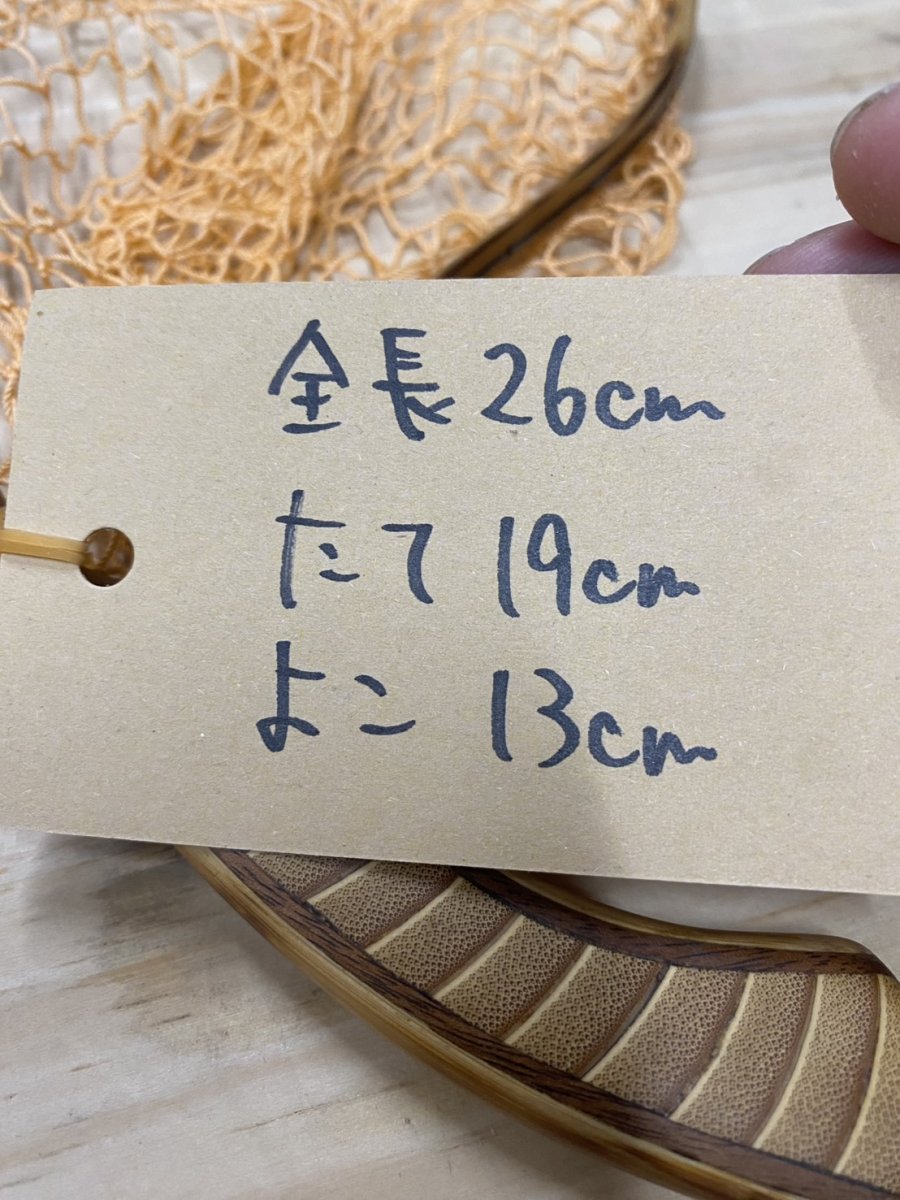 全長 26cm
たて 19cm
よこ 13cm